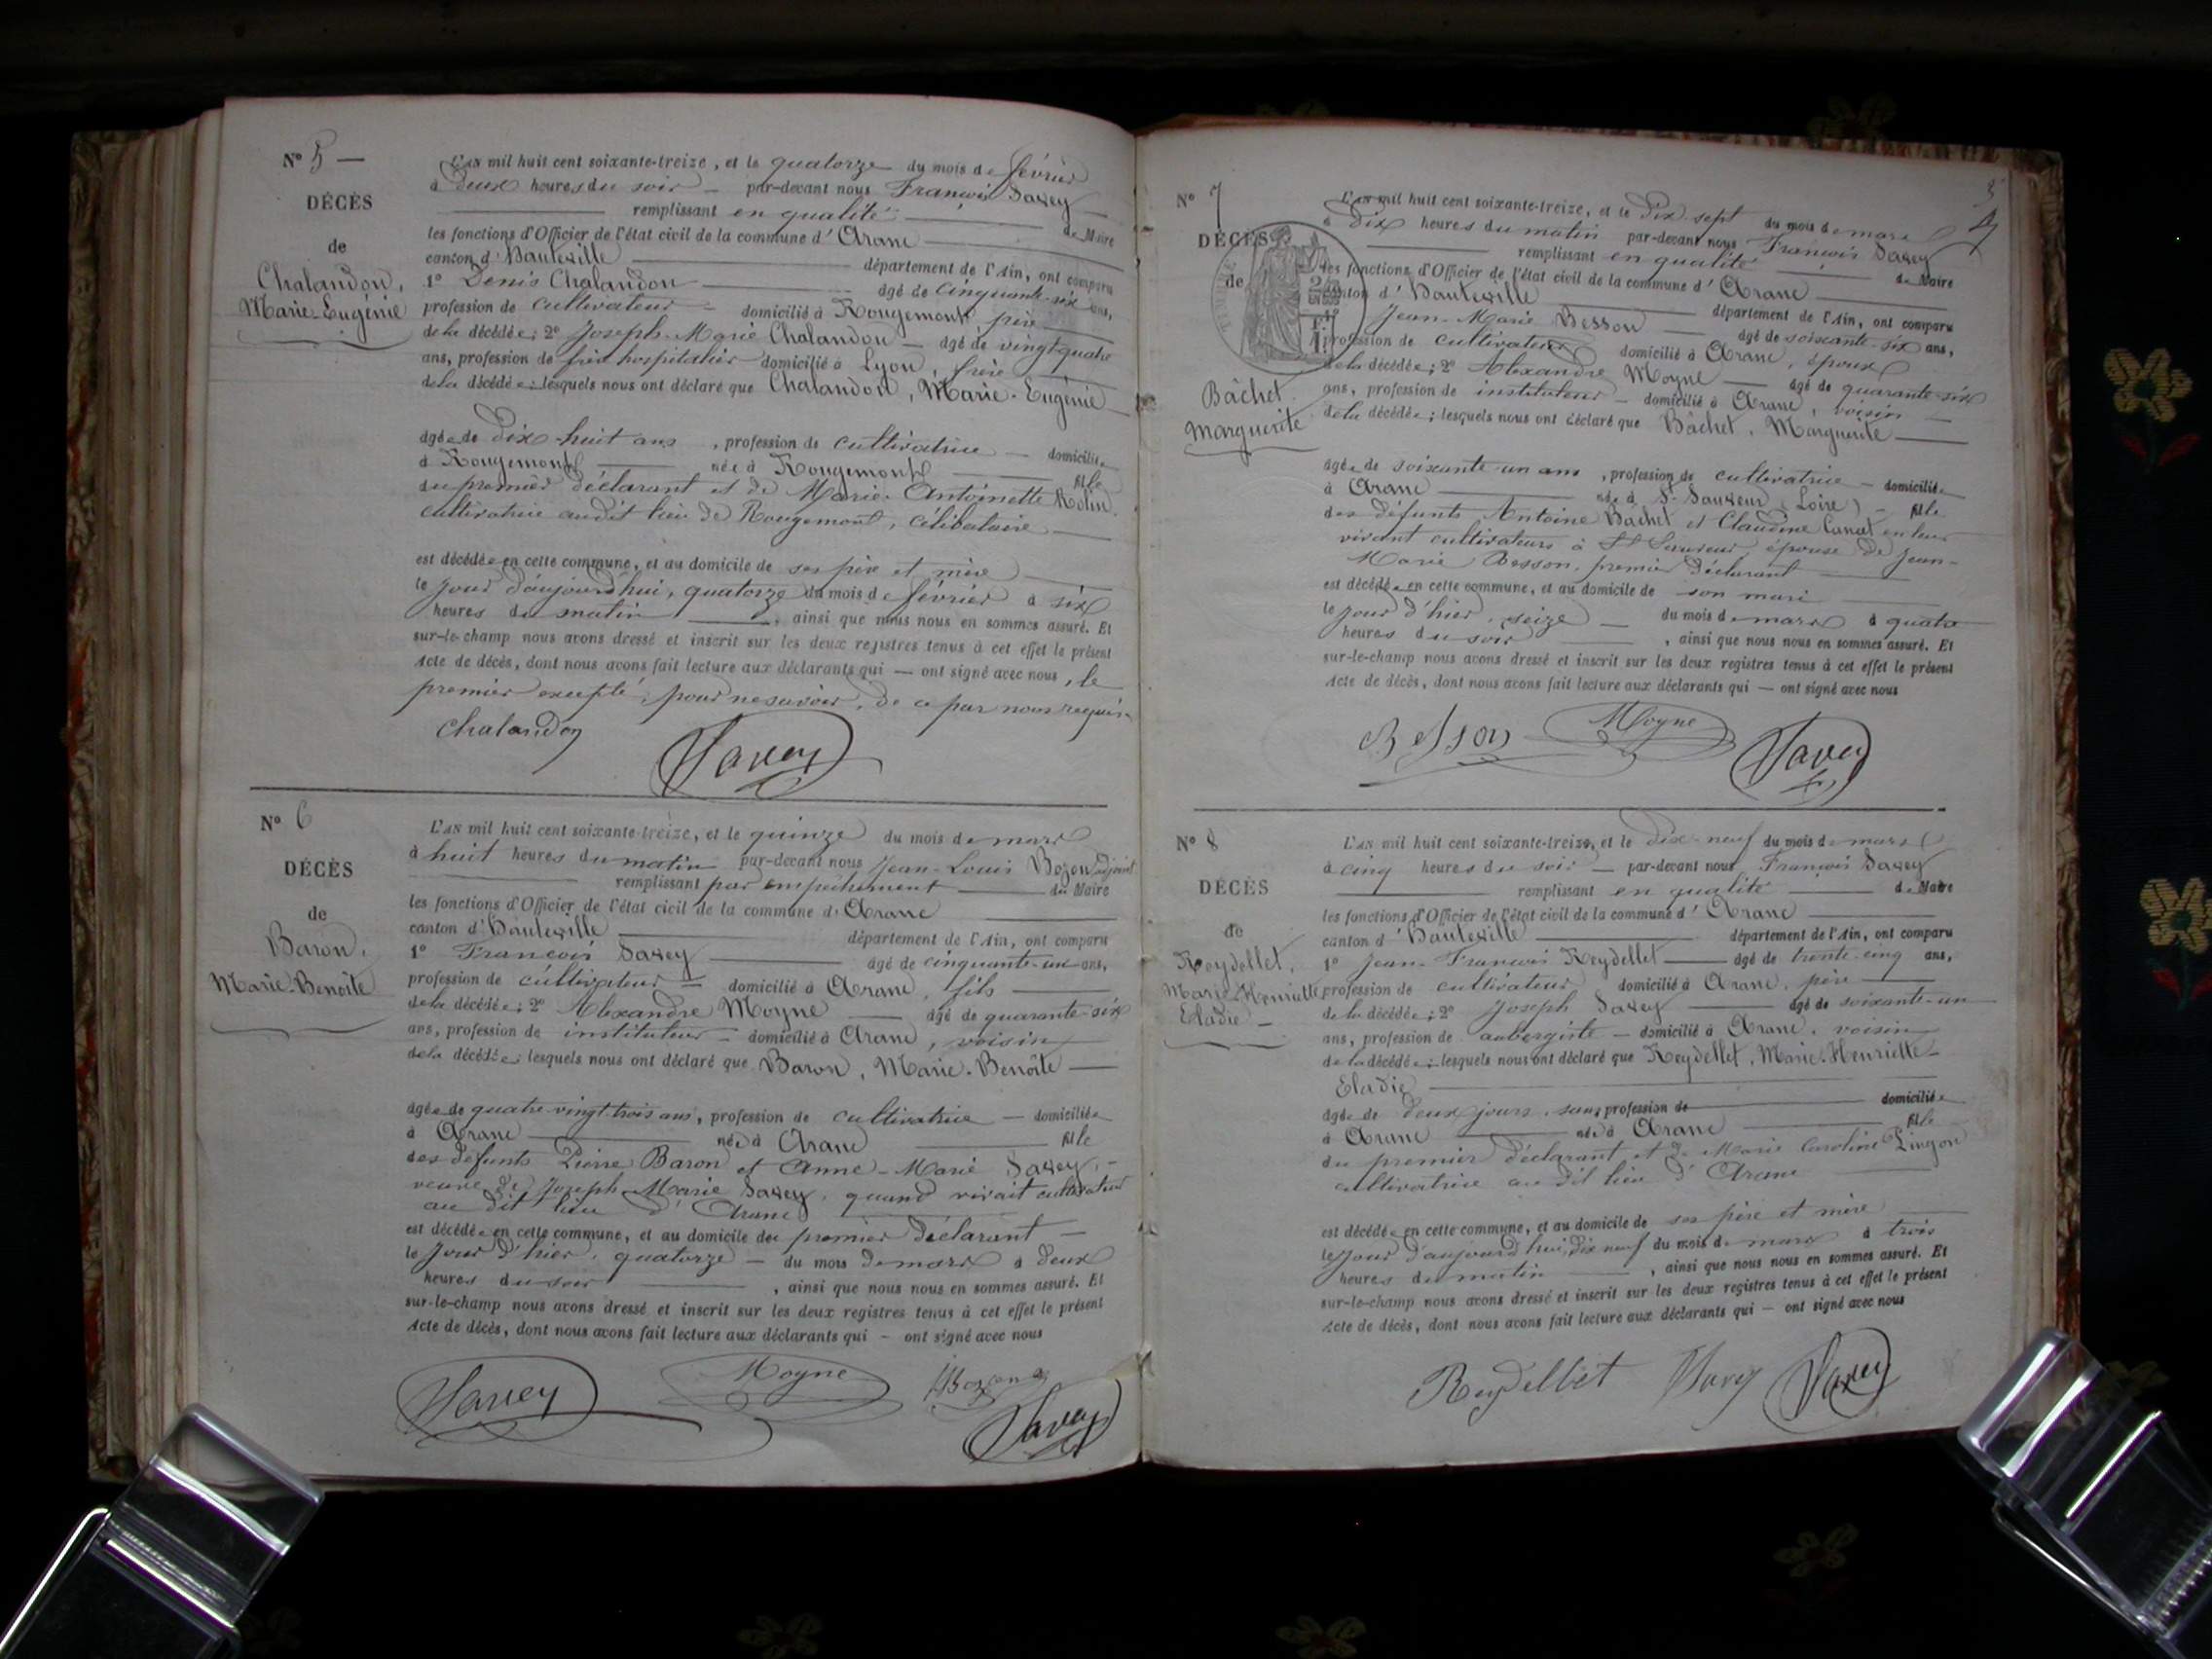 Nº 5 —
DÉCÈS
de
Chalandon,
Marie-Eugénie
L'AN mil huit cent soixante-treize, et le quatorze du mois de février
à deux heures du soir — par-devant nous François Savey
remplissant en qualité de Maire
les fonctions d'Officier de l'état civil de la commune d'Arane
canton d'Hauteville département de l'Ain, ont comparu
1º Denis Chalandon âgé de cinquante-six ans,
profession de cultivateur domicilié à Rougemont père
de la décédée; 2º Joseph-Marie Chalandon — âgé de vingt-quatre
ans, profession de frère hospitalier domicilié à Lyon, frère
de la décédée lesquels nous ont déclaré que Chalandon, Marie-Eugénie
âgée de dix-huit ans, profession de cultivatrice — domiciliée
à Rougemont née à Rougemont fille
du premier déclarant et de Marie Antoinette Rolin
cultivatrice audit lieu de Rougemont, célibataire
est décédée en cette commune, et au domicile de ses père et mère
le jour d'aujourd'hui, quatorze du mois de février à six
heures du matin, ainsi que nous nous en sommes assuré. Et
sur-le-champ nous avons dressé et inscrit sur les deux registres tenus à cet effet le présent
Acte de décès, dont nous avons fait lecture aux déclarants qui — ont signé avec nous, le
premier excepté, pour ne savoir, de ce par nous requis.
Chalandon Savey
Nº 6
DÉCÈS
de
Baron,
Marie-Benoîte
L'AN mil huit cent soixante-treize, et le quinze du mois de mars
à huit heures du matin par-devant nous Jean-Louis Bozon adjoint
remplissant par empêchement du Maire
les fonctions d'Officier de l'état civil de la commune d'Arane
canton d'Hauteville département de l'Ain, ont comparu
1º François Savey âgé de cinquante-un ans,
profession de cultivateur — domicilié à Arane, fils
de la décédée; 2º Alexandre Moyne âgé de quarante-six
ans, profession de instituteur — domicilié à Arane, voisin
de la décédée; lesquels nous ont déclaré que Baron, Marie-Benoîte —
âgée de quatre-vingt-trois ans, profession de cultivatrice — domiciliée
à Arane née à Arane fille
des défunts Pierre Baron et Anne-Marie Savey, —
veuve de Joseph Marie Savey, quand vivait cultivateur
au dit lieu d'Arane
est décédée en cette commune, et au domicile du premier déclarant —
le jour d'hier, quatorze — du mois de mars à deux
heures du soir, ainsi que nous nous en sommes assuré. Et
sur-le-champ nous avons dressé et inscrit sur les deux registres tenus à cet effet le présent
Acte de décès, dont nous avons fait lecture aux déclarants qui — ont signé avec nous
Savey Moyne Bozon
Savey
Nº 7
DÉCÈS
de
Bâchet
Marguerite
L'AN mil huit cent soixante-treize, et le dix-sept du mois de mars
à dix heures du matin par-devant nous François Savey
remplissant en qualité de Maire
les fonctions d'Officier de l'état civil de la commune d'Arane
canton d'Hauteville département de l'Ain, ont comparu
Jean-Marie Besson âgé de soixante-six ans,
profession de cultivateur domicilié à Arane, époux
de la décédée; 2º Alexandre Moyne — âgé de quarante-six
ans, profession de instituteur — domicilié à Arane, voisin —
de la décédée; lesquels nous ont déclaré que Bâchet, Marguerite
âgée de soixante-un ans, profession de cultivatrice — domiciliée
à Arane née à St Sauveur (Loire) — fille
des défunts Antoine Bâchet et Claudine Canat en leur
vivant cultivateurs à St Sauveur, épouse de Jean-
Marie Besson, premier déclarant
est décédée en cette commune, et au domicile de son mari
le jour d'hier, seize — du mois de mars à quatre
heures du soir, ainsi que nous nous en sommes assuré. Et
sur-le-champ nous avons dressé et inscrit sur les deux registres tenus à cet effet le présent
Acte de décès, dont nous avons fait lecture aux déclarants qui — ont signé avec nous
Besson Moyne Savey
Nº 8
DÉCÈS
de
Reydellet,
Marie-Henriette
Eladie —
L'AN mil huit cent soixante-treize, et le dix-neuf du mois de mars
à cinq heures du soir — par-devant nous François Savey
remplissant en qualité de Maire
les fonctions d'Officier de l'état civil de la commune d'Arane
canton d'Hauteville département de l'Ain, ont comparu
1º Jean-François Reydellet âgé de trente-cinq ans,
profession de cultivateur domicilié à Arane, père
de la décédée; 2º Joseph Savey âgé de soixante-un
ans, profession de aubergiste — domicilié à Arane, voisin
de la décédée; lesquels nous ont déclaré que Reydellet, Marie-Henriette
Eladie
âgée de deux jours, sans profession de domiciliée
à Arane née à Arane fille
du premier déclarant, et de Marie Caroline Lingon
cultivatrice au dit lieu d'Arane
est décédée en cette commune, et au domicile de ses père et mère
le jour d'aujourd'hui, dix-neuf du mois de mars à trois
heures du matin, ainsi que nous nous en sommes assuré. Et
sur-le-champ nous avons dressé et inscrit sur les deux registres tenus à cet effet le présent
Acte de décès, dont nous avons fait lecture aux déclarants qui — ont signé avec nous
Reydellet Savey Savey